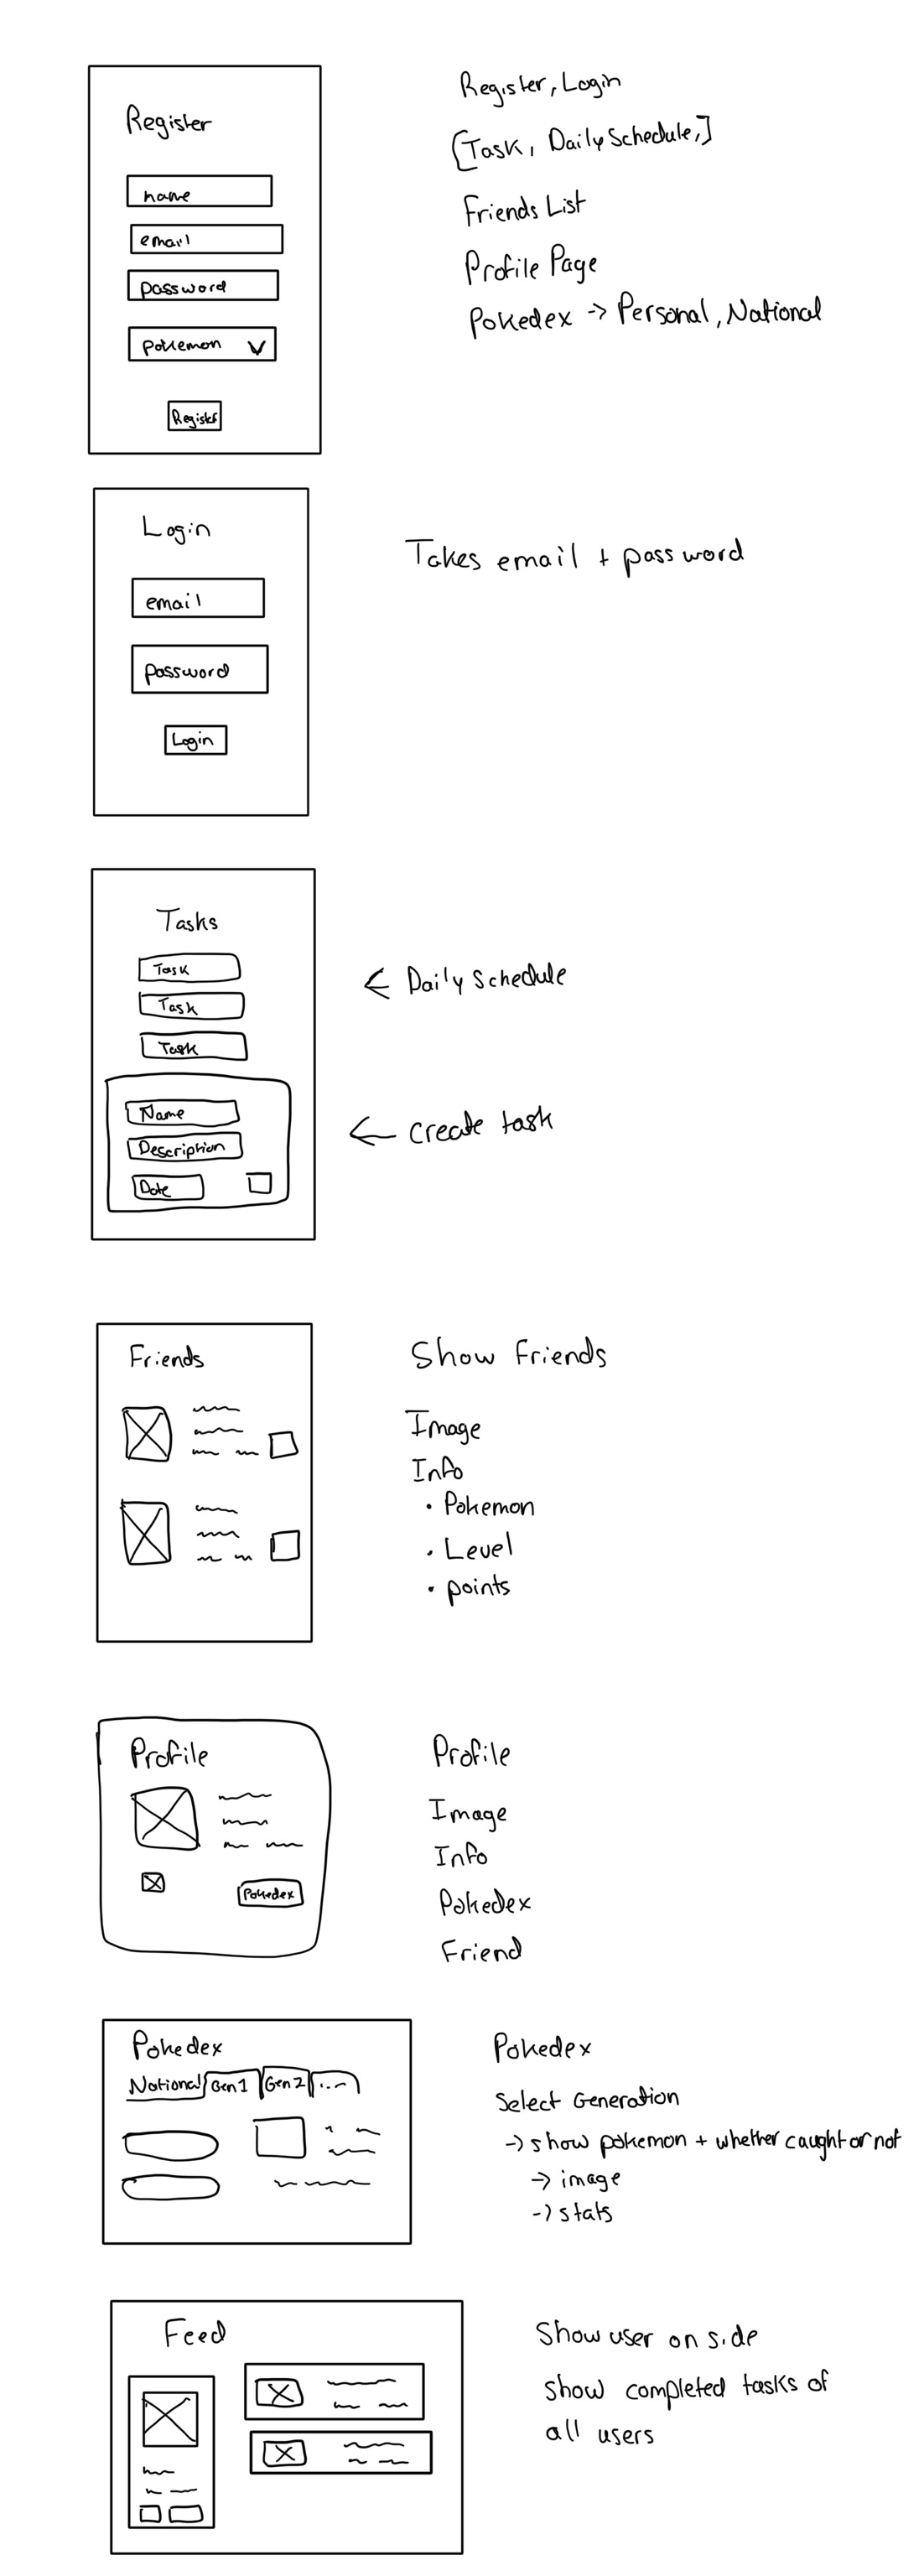 Register
name
email
password
pokemon
Register
Register, Login
[Task, Daily Schedule,]
Friends List
Profile Page
Pokedex -> Personal, National
Login
email
password
Login
Takes email + password
Tasks
Task
Task
Task
<- Daily Schedule
Name
Description
Date
<- create task
Friends
Show Friends
Image
Info
• Pokemon
• Level
• points
Profile
Pokedex
Profile
Image
Info
Pokedex
Friend
Pokedex
National Gen 1 Gen 2 ...
Pokedex
Select Generation
-> show pokemon + whether caught or not
-> image
-> stats
Feed
Show user on side
show completed tasks of
all users